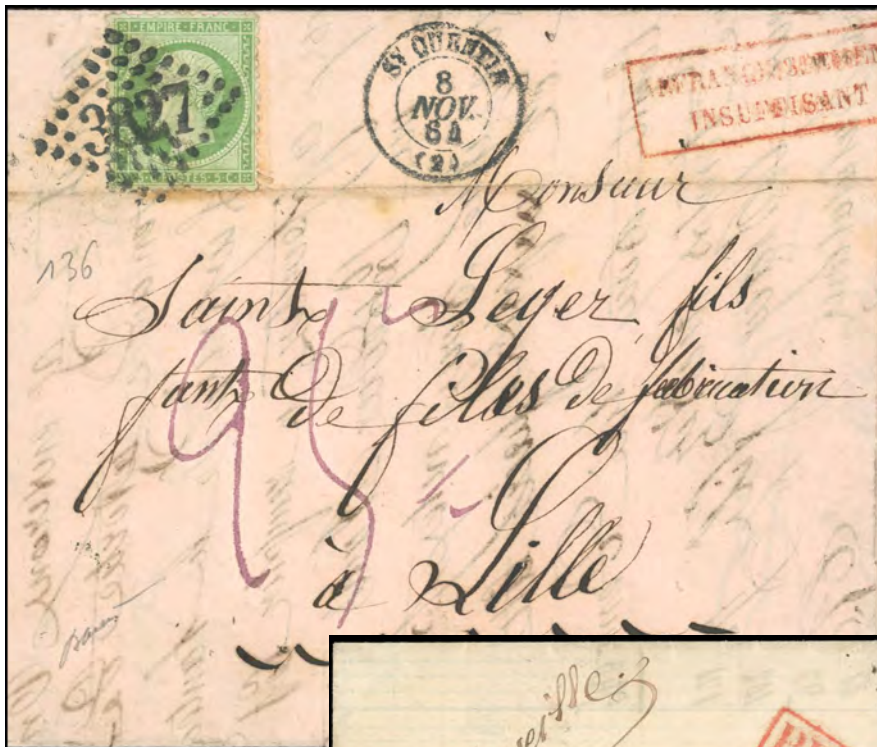 EMPIRE·FRANC
3827
POSTES·5·C
ST QUENTIN
8
NOV.
64
(2)
AFFRANCHISSEMENT
INSUFFISANT
136
Monsieur
Saint Leger fils
fant de files de fabrication
à Lille